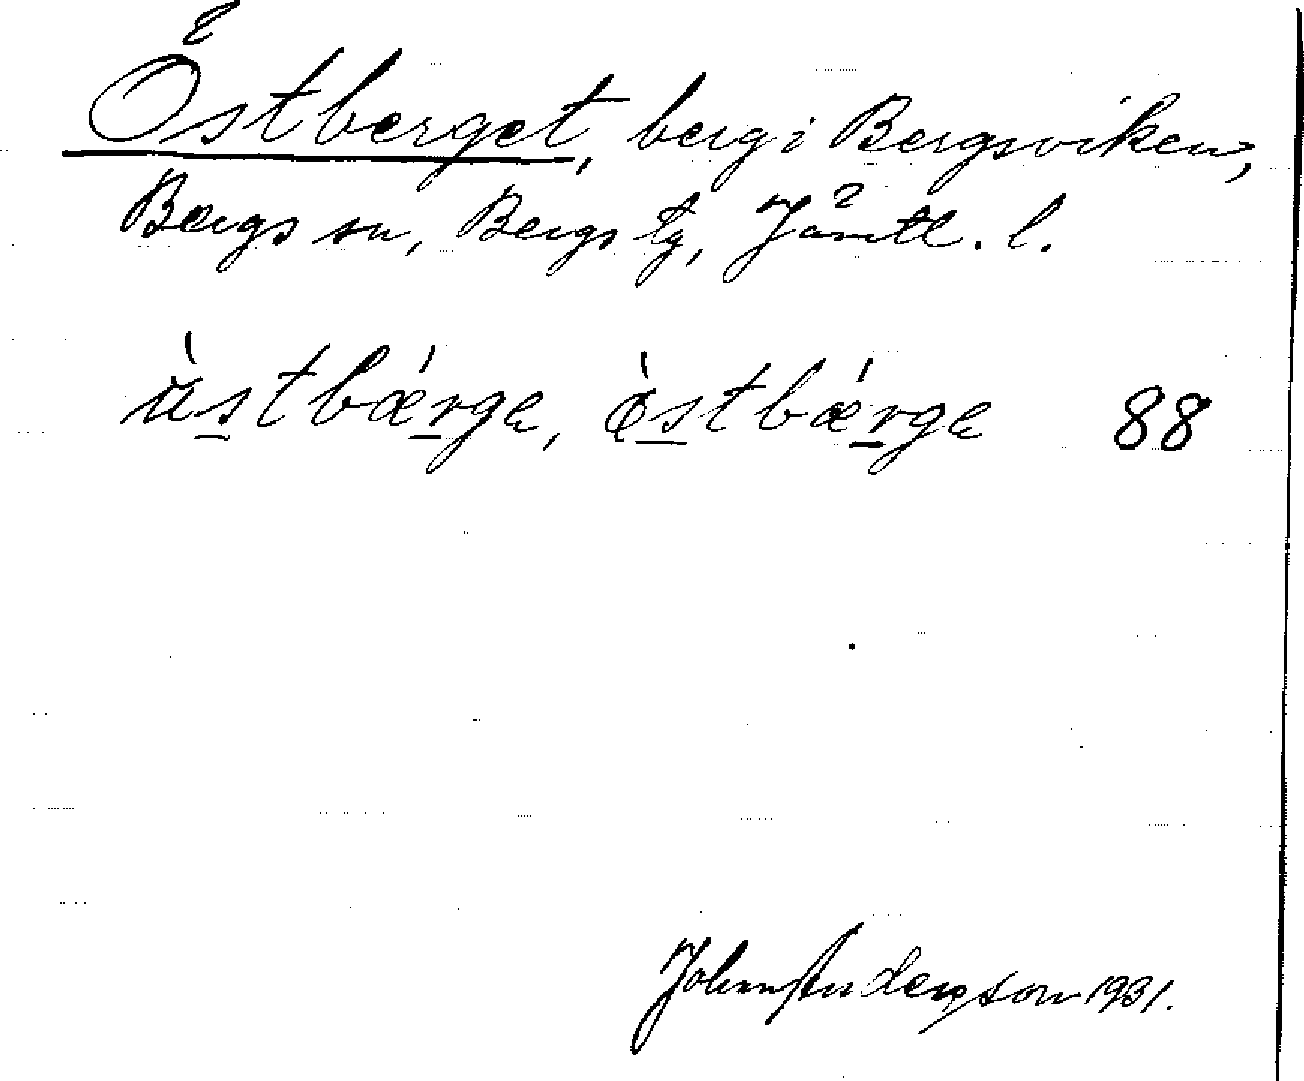 Östberget, berg i Bergsviken,
Bergs sn, Bergs tg, Jämtl. l.
ùstbǽrge, ö̀stbǽrge 88
John Andersson 1931.